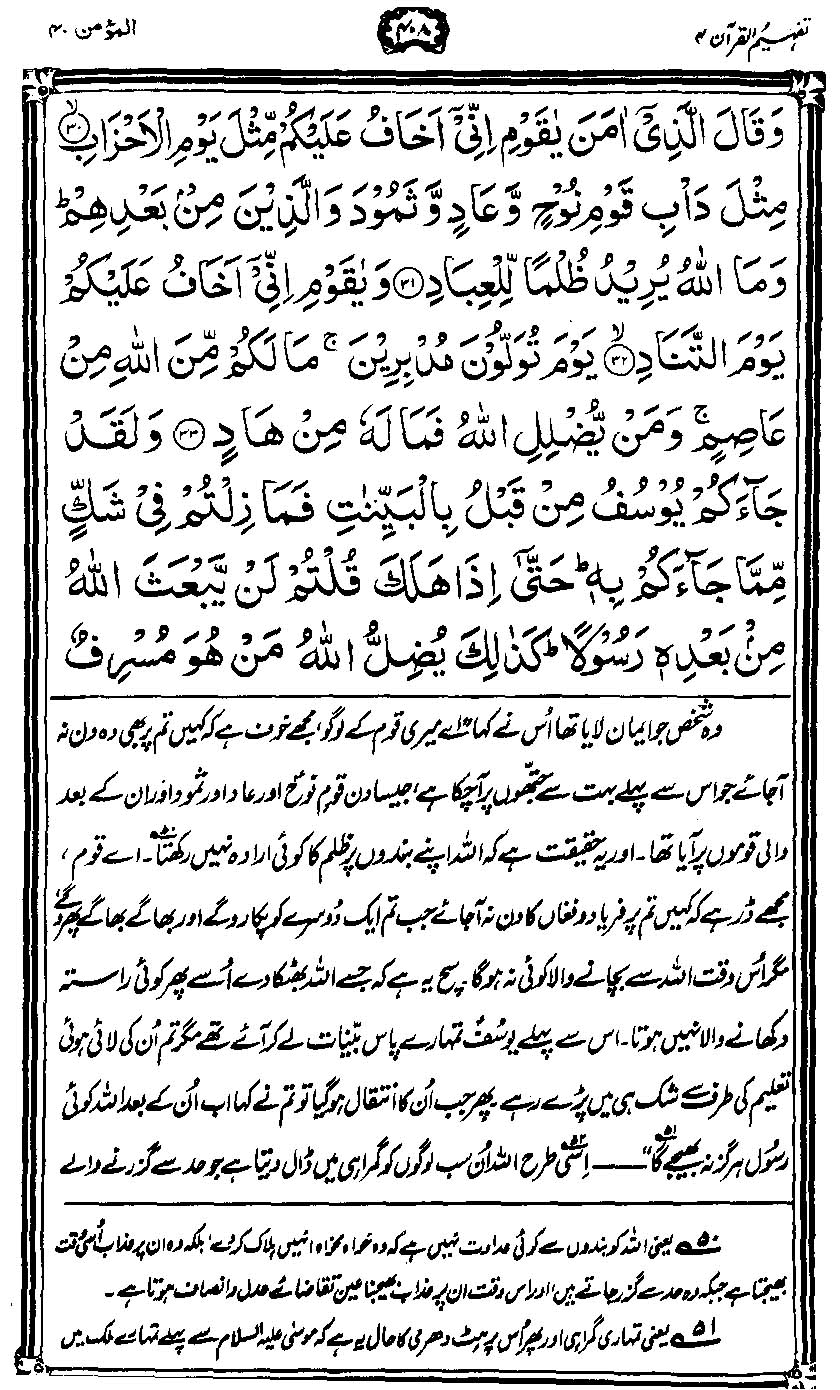 تفہیم القرآن ۴
۴۰۸
المؤمن ۴۰
وَقَالَ الَّذِیْۤ اٰمَنَ یٰقَوْمِ اِنِّیْۤ اَخَافُ عَلَیْكُمْ مِّثْلَ یَوْمِ الْاَحْزَابِ ﴿۳۰﴾ۙ
مِثْلَ دَاْبِ قَوْمِ نُوْحٍ وَّعَادٍ وَّثَمُوْدَ وَالَّذِیْنَ مِنْۢ بَعْدِهِمْ ؕ
وَمَا اللّٰهُ یُرِیْدُ ظُلْمًا لِّلْعِبَادِ ﴿۳۱﴾ وَیٰقَوْمِ اِنِّیْۤ اَخَافُ عَلَیْكُمْ
یَوْمَ التَّنَادِ ﴿۳۲﴾ۙ یَوْمَ تُوَلُّوْنَ مُدْبِرِیْنَ ۚ مَا لَكُمْ مِّنَ اللّٰهِ مِنْ
عَاصِمٍ ۚ وَمَنْ یُّضْلِلِ اللّٰهُ فَمَا لَهٗ مِنْ هَادٍ ﴿۳۳﴾ وَلَقَدْ
جَآءَكُمْ یُوْسُفُ مِنْ قَبْلُ بِالْبَیِّنٰتِ فَمَا زِلْتُمْ فِیْ شَكٍّ
مِّمَّا جَآءَكُمْ بِهٖ ؕ حَتّٰۤی اِذَا هَلَكَ قُلْتُمْ لَنْ یَّبْعَثَ اللّٰهُ
مِنْۢ بَعْدِهٖ رَسُوْلًا ؕ كَذٰلِكَ یُضِلُّ اللّٰهُ مَنْ هُوَ مُسْرِفٌ
وہ شخص جو ایمان لایا تھا اُس نے کہا "اے میری قوم کے لوگو، مجھے خوف ہے کہ کہیں تم پر بھی وہ دن نہ
آجائے جو اس سے پہلے بہت سے جتھّوں پر آچکا ہے، جیسا دن قومِ نوحؑ اور عاد اور ثمود اور ان کے بعد
والی قوموں پر آیا تھا۔ اور یہ حقیقت ہے کہ اللہ اپنے بندوں پر ظلم کا کوئی ارادہ نہیں رکھتا۵۰۔ اے قوم،
مجھے ڈر ہے کہ کہیں تم پر فریاد و فغاں کا دن نہ آجائے جب تم ایک دُوسرے کو پکارو گے اور بھاگے بھاگے پھرو گے،
مگر اُس وقت اللہ سے بچانے والا کوئی نہ ہوگا۔ سچ یہ ہے کہ جسے اللہ بھٹکا دے اُسے پھر کوئی راستہ
دکھانے والا نہیں ہوتا۔ اس سے پہلے یوسفؑ تمہارے پاس بیّنات لے کر آئے تھے مگر تم اُن کی لائی ہوئی
تعلیم کی طرف سے شک ہی میں پڑے رہے۔ پھر جب اُن کا انتقال ہوگیا تو تم نے کہا اب اُن کے بعد اللہ کوئی
رسُول ہرگز نہ بھیجے گا۵۱" ــــ اِسی۵۲ طرح اللہ اُن سب لوگوں کو گمراہی میں ڈال دیتا ہے جو حد سے گزرنے والے
۵۰ یعنی اللہ کو بندوں سے کوئی عداوت نہیں ہے کہ وہ خواہ مخواہ انہیں ہلاک کر دے، بلکہ وہ ان پر عذاب اُسی وقت
بھیجتا ہے جبکہ وہ حد سے گزر جاتے ہیں، اور اس وقت ان پر عذاب بھیجنا عین تقاضائے عدل و انصاف ہوتا ہے۔
۵۱ یعنی تمہاری گمراہی اور پھر اُس پر ہٹ دھرمی کا حال یہ ہے کہ موسیٰ علیہ السلام سے پہلے تمہارے ملک میں